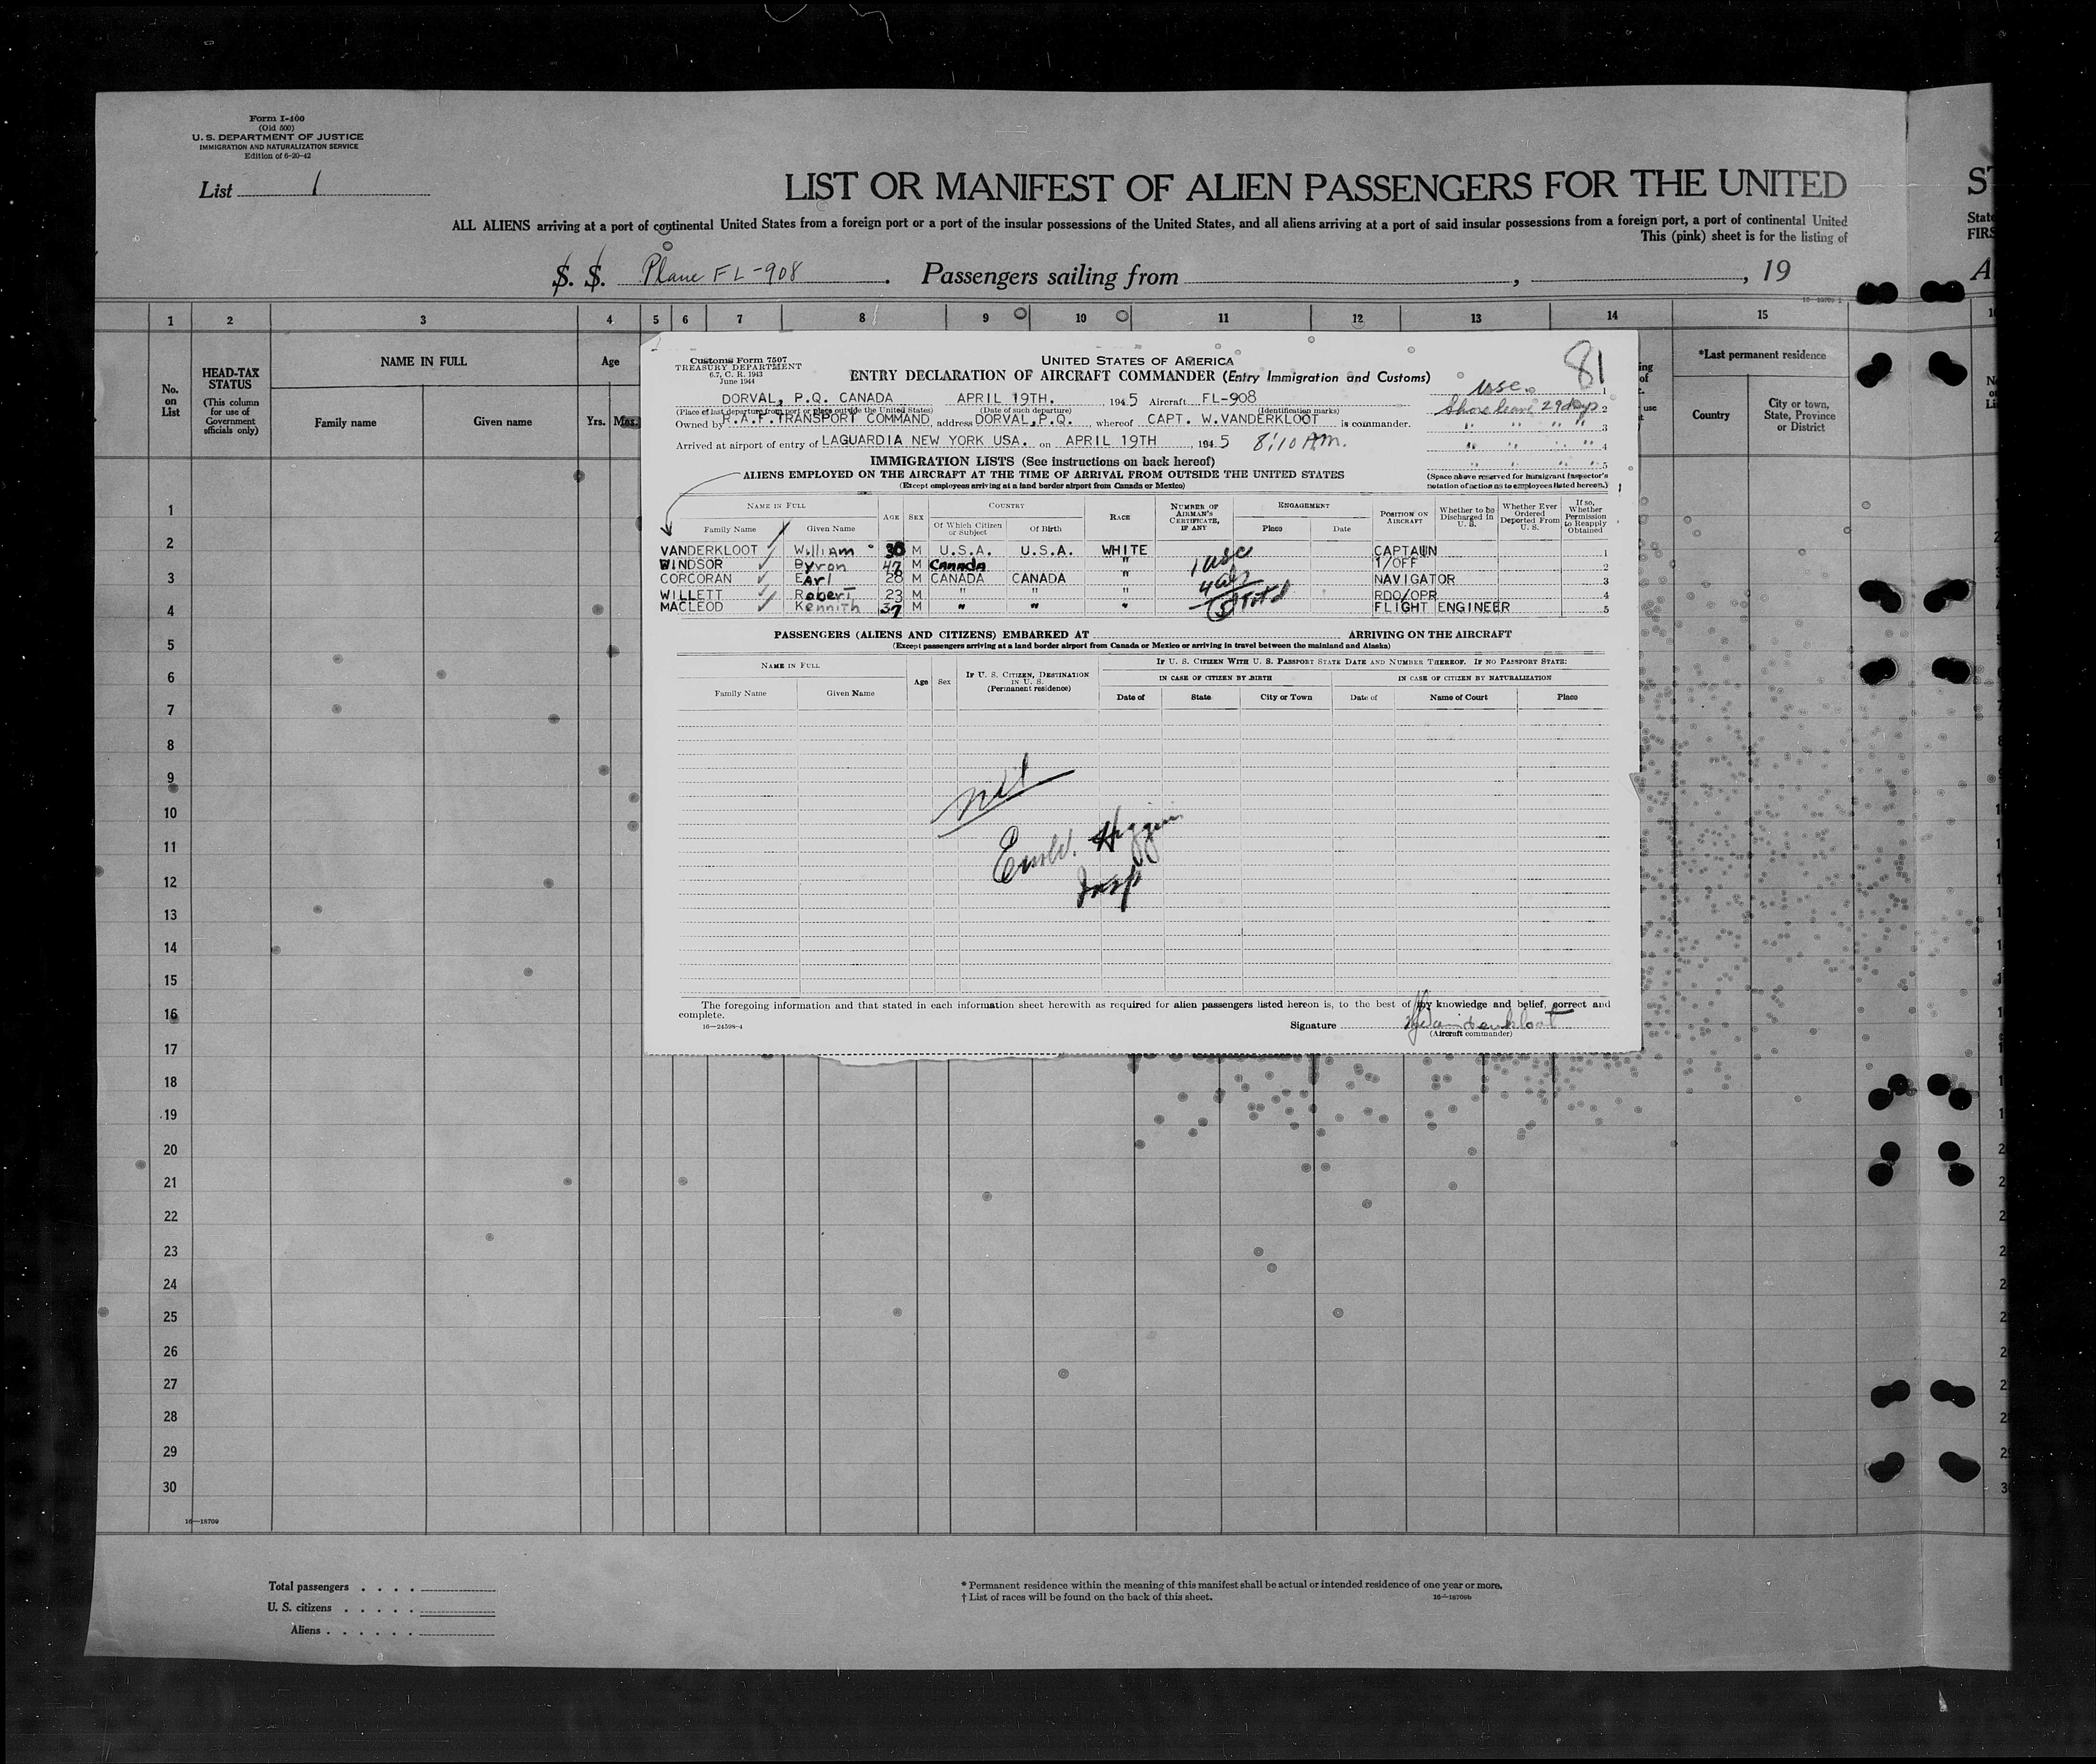 Form I-400
(Old 500)
U. S. DEPARTMENT OF JUSTICE
IMMIGRATION AND NATURALIZATION SERVICE
Edition of 6-20-42
List 1
LIST OR MANIFEST OF ALIEN PASSENGERS FOR THE UNITED
ALL ALIENS arriving at a port of continental United States from a foreign port or a port of the insular possessions of the United States, and all aliens arriving at a port of said insular possessions from a foreign port, a port of continental United
This (pink) sheet is for the listing of
S. S. Plane FL-908. Passengers sailing from , , 19
1 2 3 4 5 6 7 8 9 10 11 12 13 14 15
No. on List
HEAD-TAX STATUS
(This column for use of Government officials only)
NAME IN FULL
Family name Given name
Age
Yrs. Mos.
*Last permanent residence
Country
City or town, State, Province or District
Customs Form 7507
TREASURY DEPARTMENT
6.7, C. R. 1943
June 1944
UNITED STATES OF AMERICA
81
ENTRY DECLARATION OF AIRCRAFT COMMANDER (Entry Immigration and Customs)
USC. 1
DORVAL, P.Q. CANADA APRIL 19TH. 1945 Aircraft FL-908
Shore leave 29 days 2
(Place of last departure from port or place outside the United States) (Date of such departure) (Identification marks)
Owned by R.A.F. TRANSPORT COMMAND, address DORVAL, P.Q. , whereof CAPT. W. VANDERKLOOT is commander.
" " " " 3
Arrived at airport of entry of LAGUARDIA NEW YORK USA. on APRIL 19TH , 1945 8:10 AM.
" " " " 4
IMMIGRATION LISTS (See instructions on back hereof)
" " " " 5
ALIENS EMPLOYED ON THE AIRCRAFT AT THE TIME OF ARRIVAL FROM OUTSIDE THE UNITED STATES
(Space above reserved for Immigrant Inspector's notation of action as to employees listed hereon.)
(Except employees arriving at a land border airport from Canada or Mexico)
NAME IN FULL
Family Name Given Name
AGE SEX
COUNTRY
Of Which Citizen or Subject Of Birth
RACE
NUMBER OF AIRMAN'S CERTIFICATE, IF ANY
ENGAGEMENT
Place Date
POSITION ON AIRCRAFT
Whether to be Discharged in U. S.
Whether Ever Ordered Deported From U. S.
If so, Whether Permission to Reapply Obtained
VANDERKLOOT William 30 M U.S.A. U.S.A. WHITE CAPTAIN 1
WINDSOR Byron 47 M Canada " 1/OFF 2
CORCORAN EArl 28 M CANADA CANADA " NAVIGATOR 3
WILLETT Robert 23 M " " " RDO/OPR 4
MACLEOD Kennith 37 M " " " FLIGHT ENGINEER 5
1 USC
4 als
(5) Total
PASSENGERS (ALIENS AND CITIZENS) EMBARKED AT ARRIVING ON THE AIRCRAFT
(Except passengers arriving at a land border airport from Canada or Mexico or arriving in travel between the mainland and Alaska)
NAME IN FULL
Family Name Given Name
Age Sex
IF U. S. CITIZEN, DESTINATION IN U. S.
(Permanent residence)
IF U. S. CITIZEN WITH U. S. PASSPORT STATE DATE AND NUMBER THEREOF. IF NO PASSPORT STATE:
IN CASE OF CITIZEN BY BIRTH IN CASE OF CITIZEN BY NATURALIZATION
Date of State City or Town Date of Name of Court Place
nil
Higgins
Insp
The foregoing information and that stated in each information sheet herewith as required for alien passengers listed hereon is, to the best of my knowledge and belief, correct and
complete.
16—24598-4
Signature W Vanderkloot
(Aircraft commander)
1
2
3
4
5
6
7
8
9
10
11
12
13
14
15
16
17
18
19
20
21
22
23
24
25
26
27
28
29
30
16—18709
Total passengers . . . .
U. S. citizens . . . . .
Aliens . . . . . .
* Permanent residence within the meaning of this manifest shall be actual or intended residence of one year or more.
† List of races will be found on the back of this sheet.
16—18709b